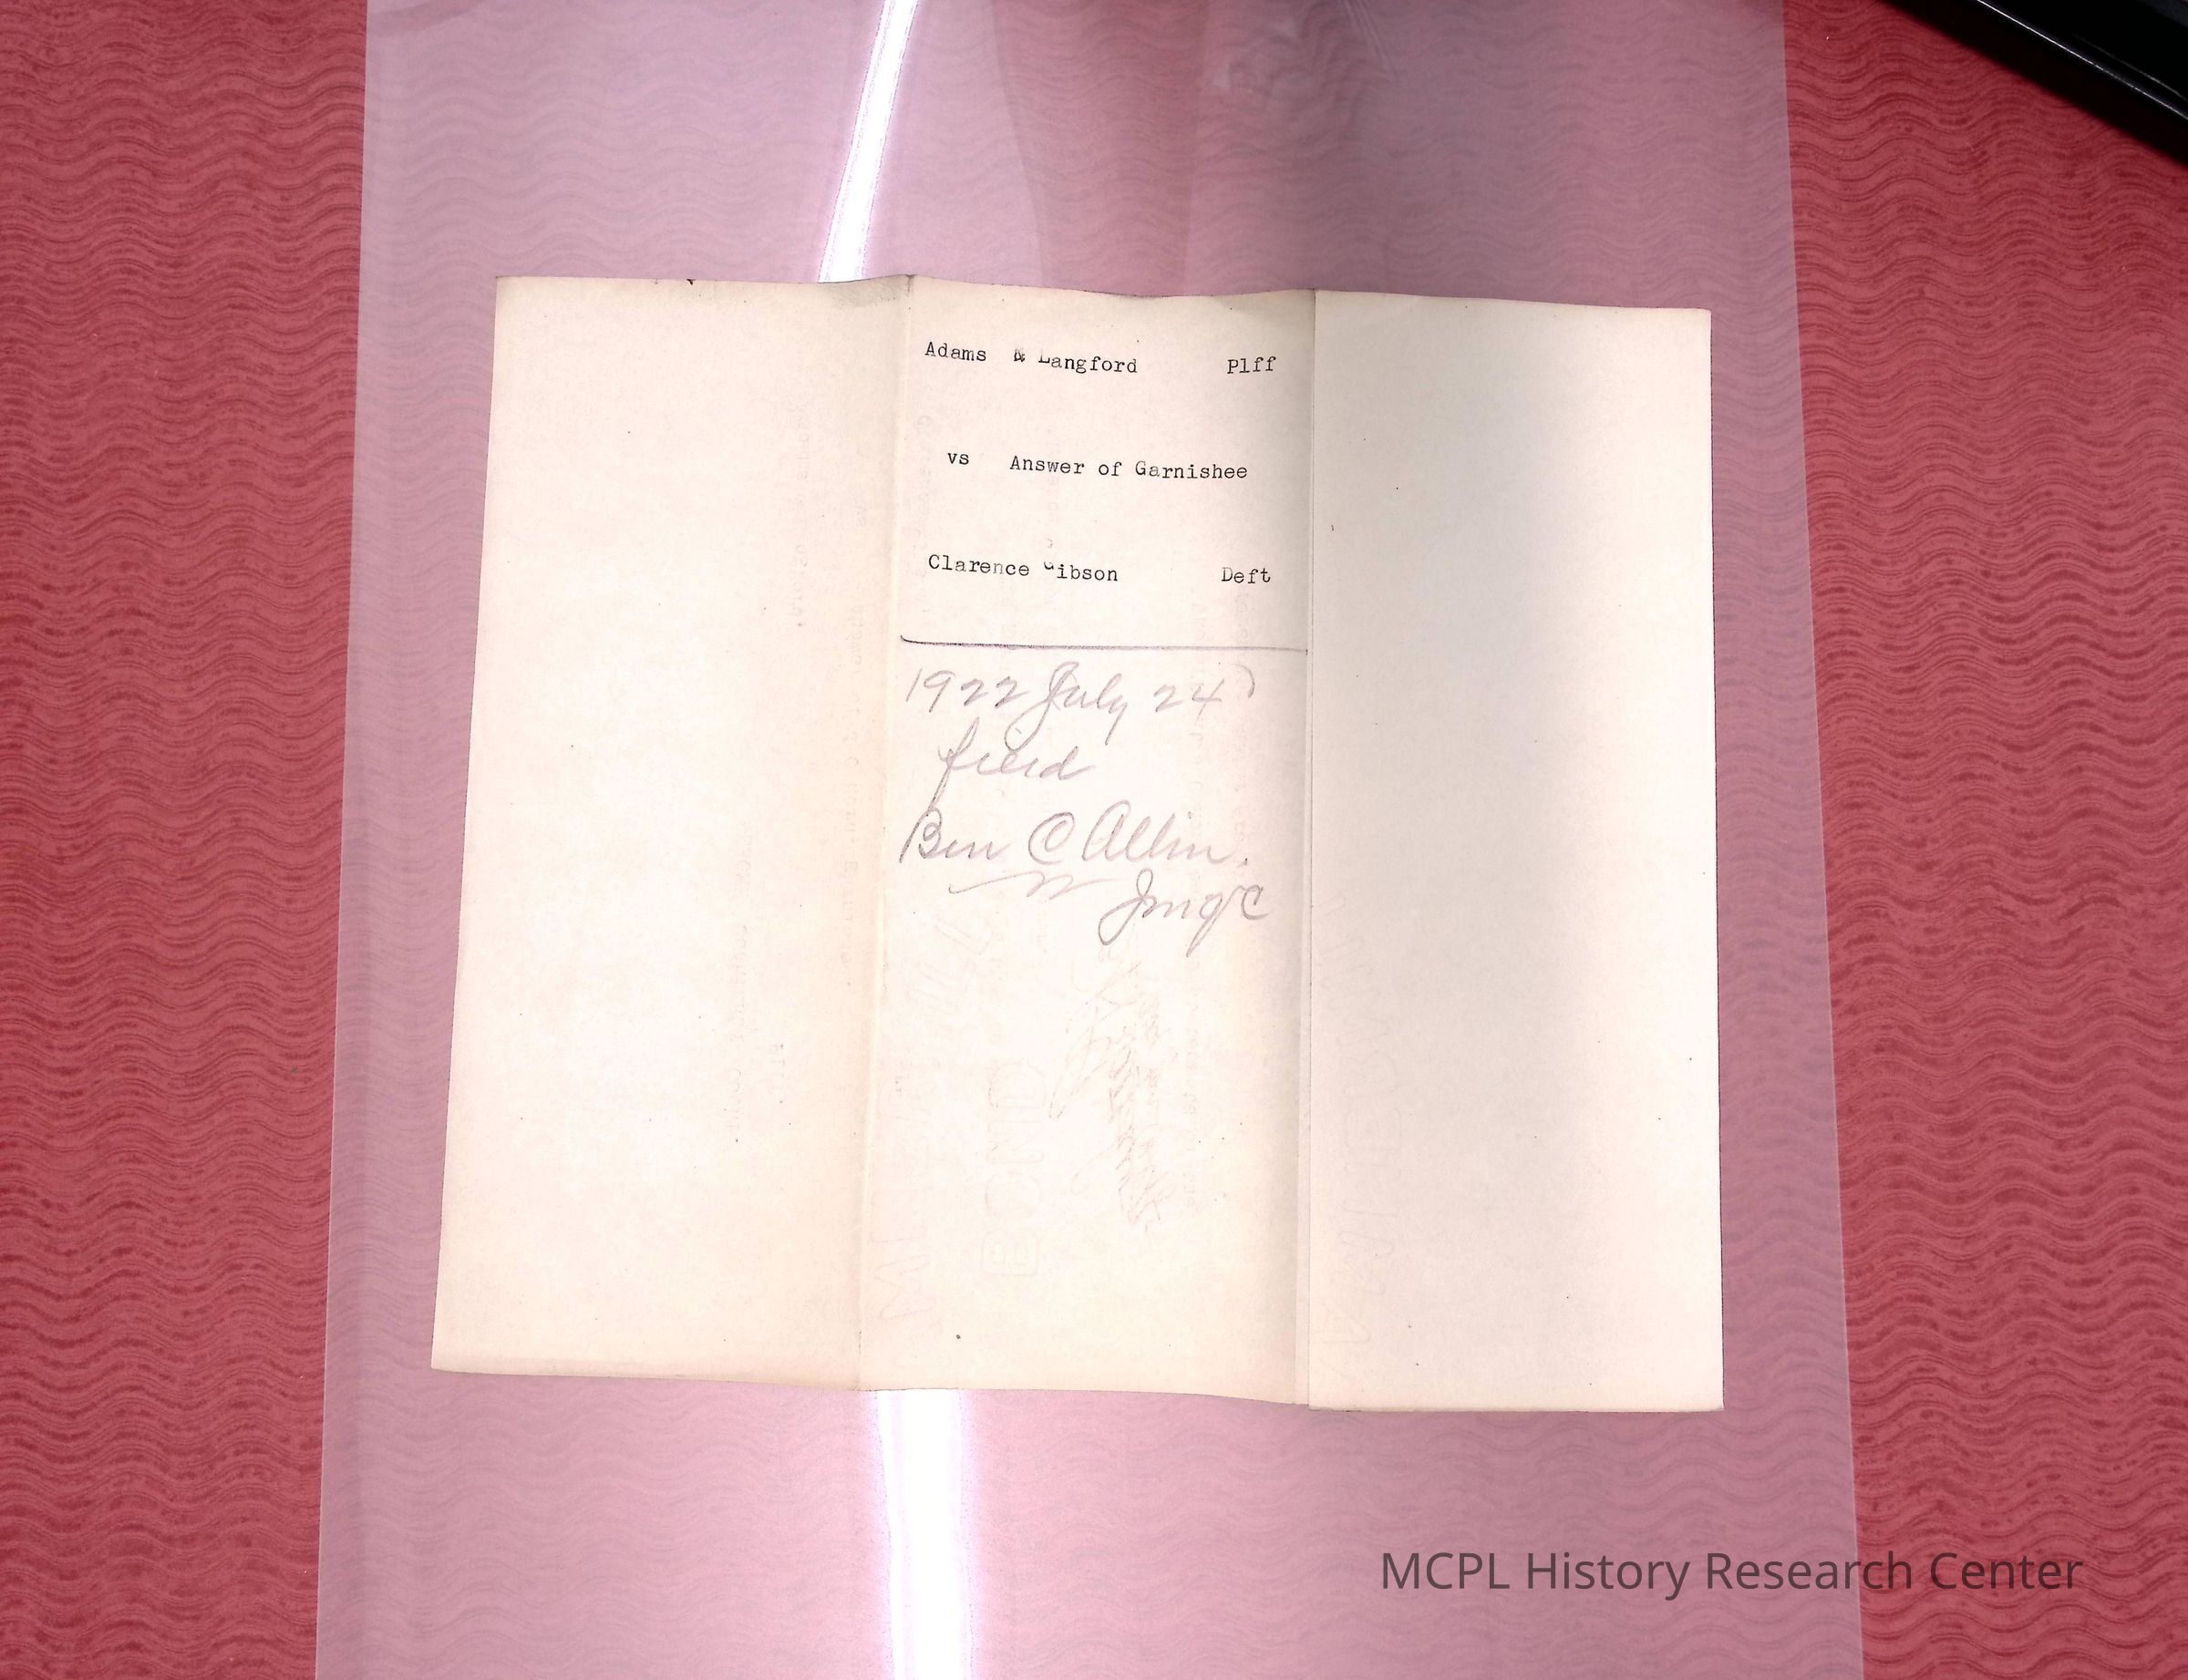 Adams & Langford Plff
vs Answer of Garnishee
Clarence Gibson Deft
1922 July 24
filed
Ben C Allin.
BOND
MCPL History Research Center